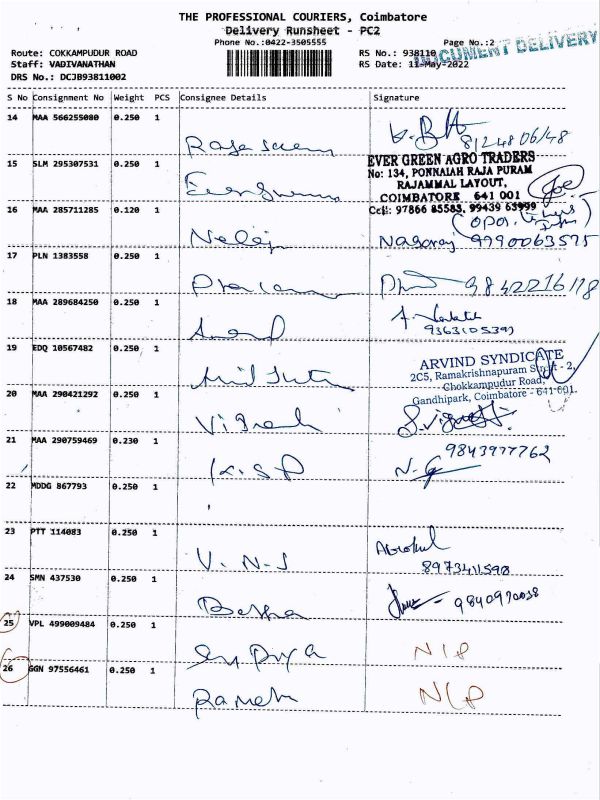 THE PROFESSIONAL COURIERS, Coimbatore
Delivery Runsheet - PC2
Phone No.:0422-3505555
Page No.:2
DOCUMENT DELIVERY
Route: COKKAMPUDUR ROAD
RS No.: 938110
Staff: VADIVANATHAN
RS Date: 11-May-2022
DRS No.: DCJB93811002
S No Consignment No Weight PCS Consignee Details Signature
14 MAA 566255080 0.250 1
81248 06148
15 SLM 295307531 0.250 1
EVER GREEN AGRO TRADERS
No: 134, PONNAIAH RAJA PURAM
RAJAMMAL LAYOUT,
COIMBATORE 641 001
Cell: 97866 85583, 99439 63999
16 MAA 285711285 0.120 1
Nagaraj 9790063575
17 PLN 1383558 0.250 1
9842216118
18 MAA 289684250 0.250 1 Anand
19 EDQ 10567482 0.250 1
ARVIND SYNDICATE
2C5, Ramakrishnapuram Street - 2,
Chokkampudur Road,
Gandhipark, Coimbatore - 641 001.
20 MAA 290421292 0.250 1 Vignesh
21 MAA 290759469 0.230 1 K.S.P
9843977762
22 MDDG 867793 0.250 1
23 PTT 114083 0.250 1 V.N.S
8973411598
24 SMN 437530 0.250 1
9840970038
25 VPL 499009484 0.250 1 NIP
26 GGN 97556461 0.250 1 Ramesh NIP